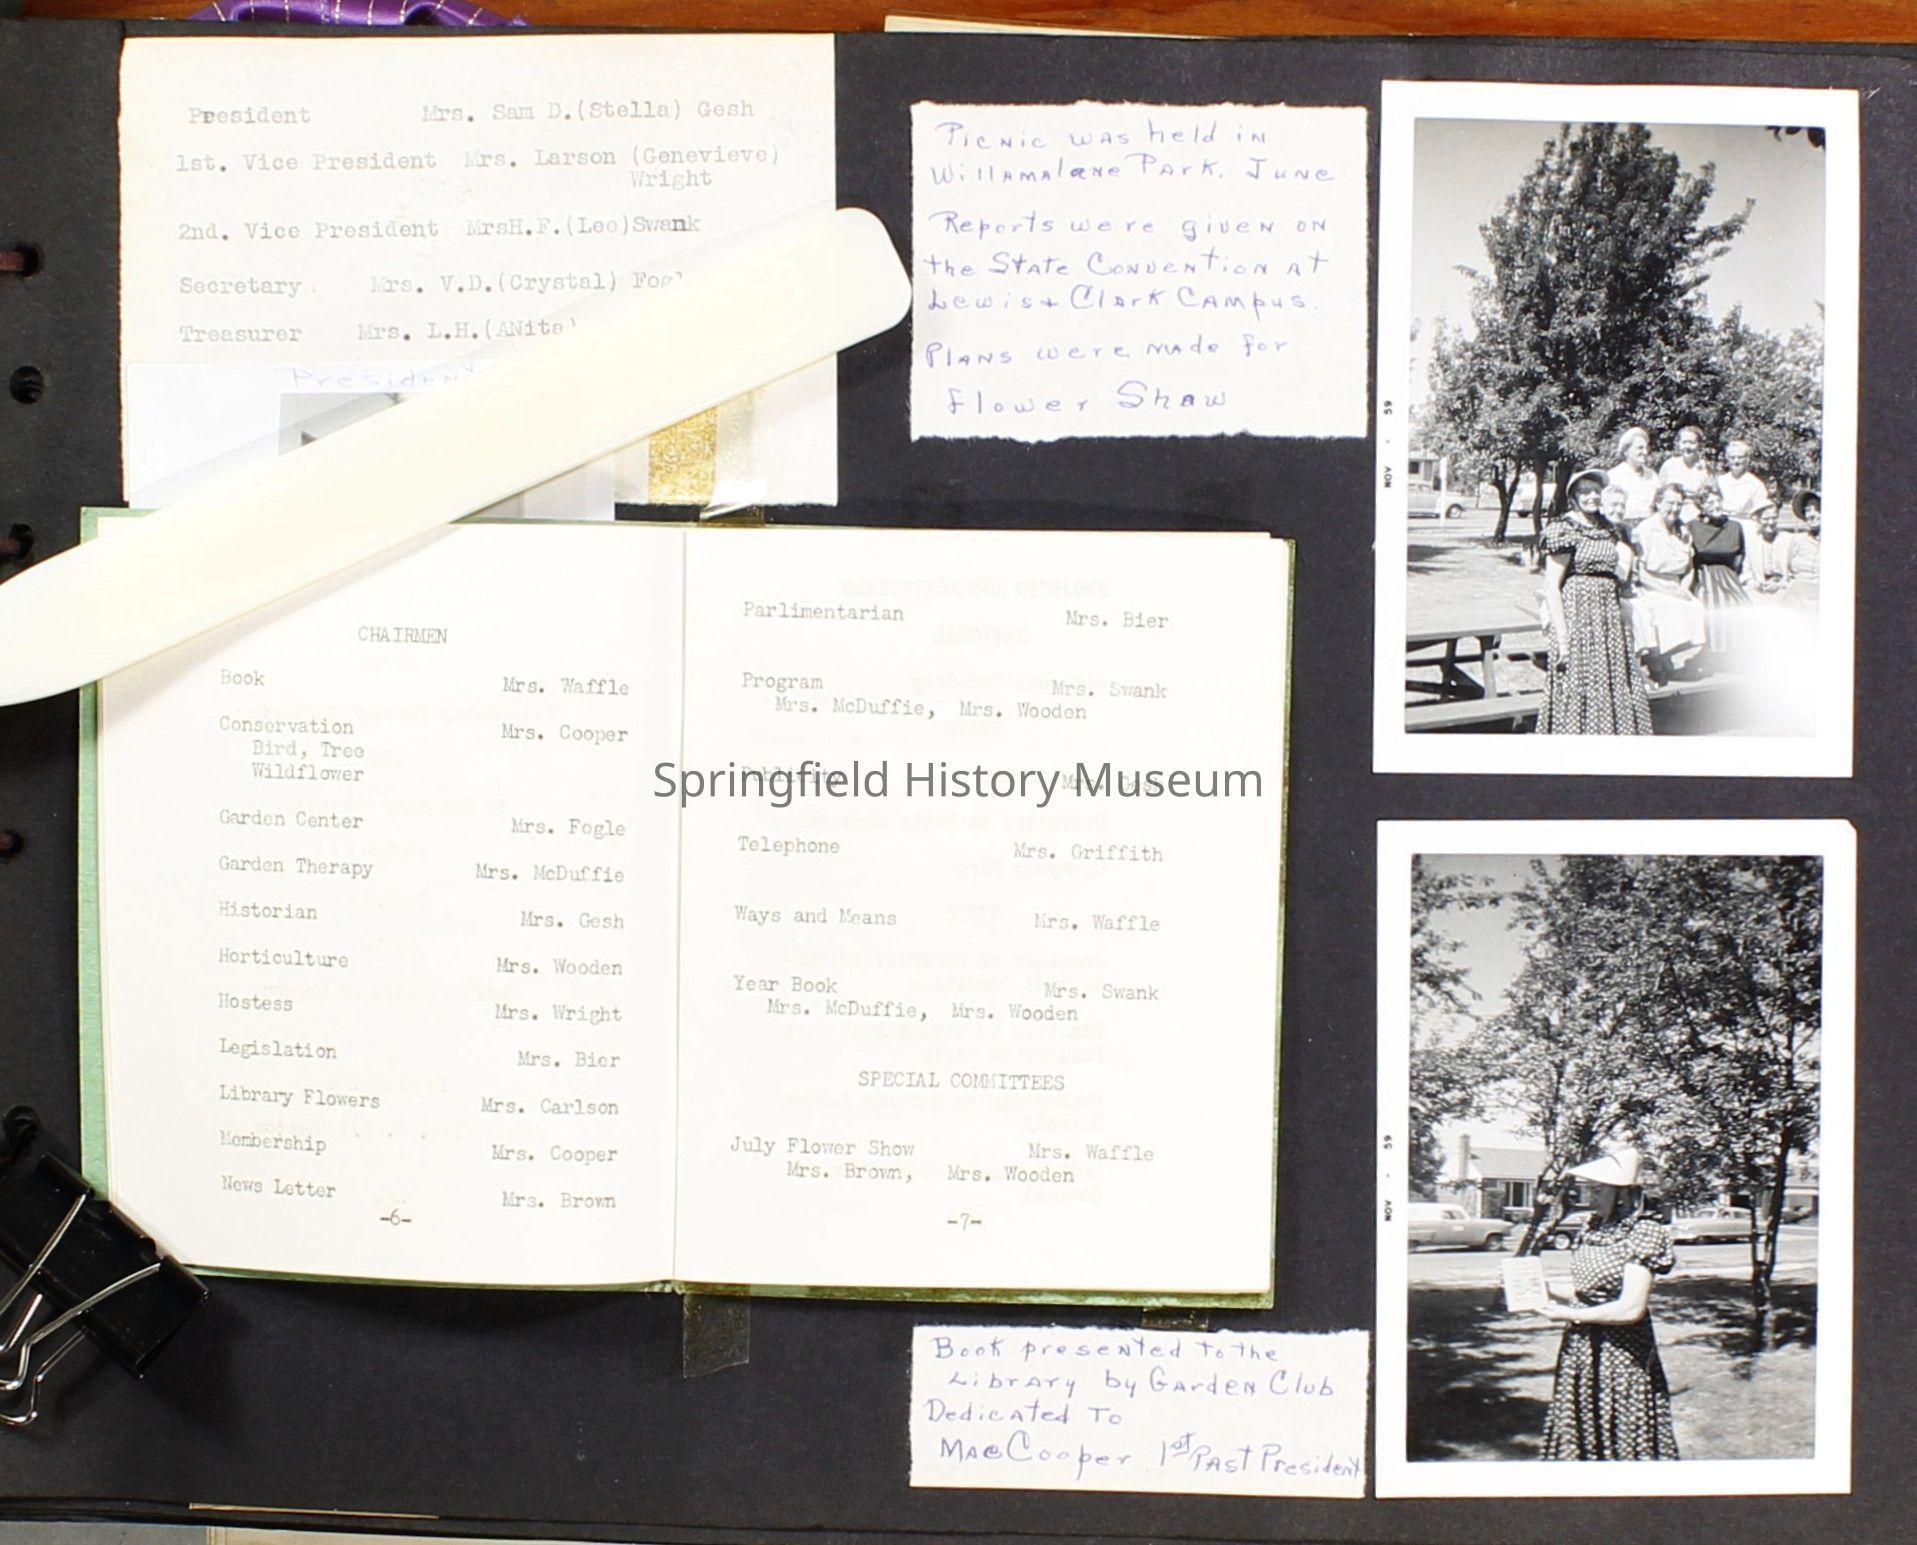 President Mrs. Sam D.(Stella) Gesh
1st. Vice President Mrs. Larson (Genevieve)
Wright
2nd. Vice President MrsH.F.(Leo)Swank
Secretary Mrs. V.D.(Crystal)
Treasurer Mrs. L.H.(ANita
President
Picnic was held in
Willamalane Park. June
Reports were given on
the State Convention at
Lewis + Clark Campus.
Plans were made for
flower Show
NOV . 59
CHAIRMEN
Book Mrs. Waffle
Conservation Mrs. Cooper
Bird, Tree
Wildflower
Garden Center Mrs. Fogle
Garden Therapy Mrs. McDuffie
Historian Mrs. Gesh
Horticulture Mrs. Wooden
Hostess Mrs. Wright
Legislation Mrs. Bier
Library Flowers Mrs. Carlson
Membership Mrs. Cooper
News Letter Mrs. Brown
-6-
Parlimentarian Mrs. Bier
Program Mrs. Swank
Mrs. McDuffie, Mrs. Wooden
Publicity Mrs. Gesh
Springfield History Museum
Telephone Mrs. Griffith
Ways and Means Mrs. Waffle
Year Book Mrs. Swank
Mrs. McDuffie, Mrs. Wooden
SPECIAL COMMITTEES
July Flower Show Mrs. Waffle
Mrs. Brown, Mrs. Wooden
-7-
Book presented to the
Library by Garden Club
Dedicated To
Mae Cooper 1st Past President
NOV . 59